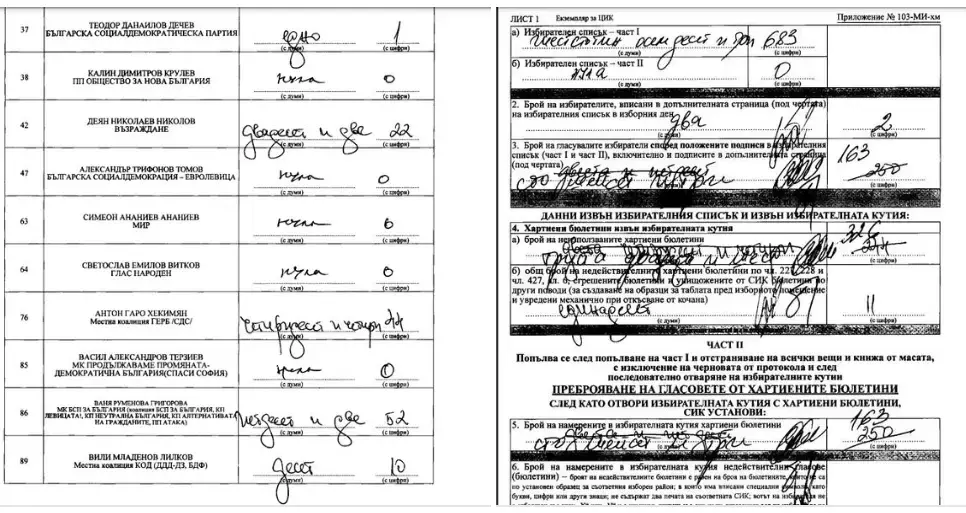 37
ТЕОДОР ДАНАИЛОВ ДЕЧЕВ
БЪЛГАРСКА СОЦИАЛДЕМОКРАТИЧЕСКА ПАРТИЯ
едно
1
(с думи)
(с цифри)
38
КАЛИН ДИМИТРОВ КРУЛЕВ
ПП ОБЩЕСТВО ЗА НОВА БЪЛГАРИЯ
нула
0
(с думи)
(с цифри)
42
ДЕЯН НИКОЛАЕВ НИКОЛОВ
ВЪЗРАЖДАНЕ
двадесет и две
22
(с думи)
(с цифри)
47
АЛЕКСАНДЪР ТРИФОНОВ ТОМОВ
БЪЛГАРСКА СОЦИАЛДЕМОКРАЦИЯ – ЕВРОЛЕВИЦА
нула
0
(с думи)
(с цифри)
63
СИМЕОН АНАНИЕВ АНАНИЕВ
МИР
нула
0
(с думи)
(с цифри)
64
СВЕТОСЛАВ ЕМИЛОВ ВИТКОВ
ГЛАС НАРОДЕН
нула
0
(с думи)
(с цифри)
76
АНТОН ГАРО ХЕКИМЯН
Местна коалиция ГЕРБ /СДС/
44
(с думи)
(с цифри)
85
ВАСИЛ АЛЕКСАНДРОВ ТЕРЗИЕВ
МК ПРОДЪЛЖАВАМЕ ПРОМЯНАТА-
ДЕМОКРАТИЧНА БЪЛГАРИЯ(СПАСИ СОФИЯ)
нула
0
(с думи)
(с цифри)
86
ВАНЯ РУМЕНОВА ГРИГОРОВА
МК БСП ЗА БЪЛГАРИЯ (коалиция БСП ЗА БЪЛГАРИЯ, КП
ЛЕВИЦАТА!, КП НЕУТРАЛНА БЪЛГАРИЯ, КП АЛТЕРНАТИВАТА
НА ГРАЖДАНИТЕ, ПП АТАКА)
петдесет и две
52
(с думи)
(с цифри)
89
ВИЛИ МЛАДЕНОВ ЛИЛКОВ
Местна коалиция КОД (ДДД-ДЗ, БДФ)
десет
10
(с думи)
(с цифри)
ЛИСТ 1 Екземпляр за ЦИК
Приложение № 103-МИ-хм
а) Избирателен списък – част I
683
(с думи)
(с цифри)
б) Избирателен списък – част II
нула
0
(с думи)
(с цифри)
2. Брой на избирателите, вписани в допълнителната страница (под чертата)
на избирателния списък в изборния ден
два
2
(с думи)
(с цифри)
3. Брой на гласувалите избиратели според положените подписи в избирателния
списък (част I и част II), включително и подписите в допълнителната страница
(под чертата)
163
250
(с цифри)
ДАННИ ИЗВЪН ИЗБИРАТЕЛНИЯ СПИСЪК И ИЗВЪН ИЗБИРАТЕЛНАТА КУТИЯ:
4. Хартиени бюлетини извън избирателната кутия
а) брой на неизползваните хартиени бюлетини
326
(с думи)
(с цифри)
б) общ брой на недействителните хартиени бюлетини по чл. 227, 228 и
чл. 427, ал. 6, сгрешените бюлетини и унищожените от СИК бюлетини по
други поводи (за създаване на образци за таблата пред изборното помещение
и увредени механично при откъсване от кочана)
единадесет
11
(с думи)
(с цифри)
ЧАСТ II
Попълва се след попълване на част I и отстраняване на всички вещи и книжа от масата,
с изключение на черновата от протокола и след
последователно отваряне на избирателните кутии
ПРЕБРОЯВАНЕ НА ГЛАСОВЕТЕ ОТ ХАРТИЕНИТЕ БЮЛЕТИНИ
СЛЕД КАТО ОТВОРИ ИЗБИРАТЕЛНАТА КУТИЯ С ХАРТИЕНИ БЮЛЕТИНИ,
СИК УСТАНОВИ:
5. Брой на намерените в избирателната кутия хартиени бюлетини
163
250
(с думи)
(с цифри)
6. Брой на намерените в избирателната кутия недействителни гласове
(бюлетини) –